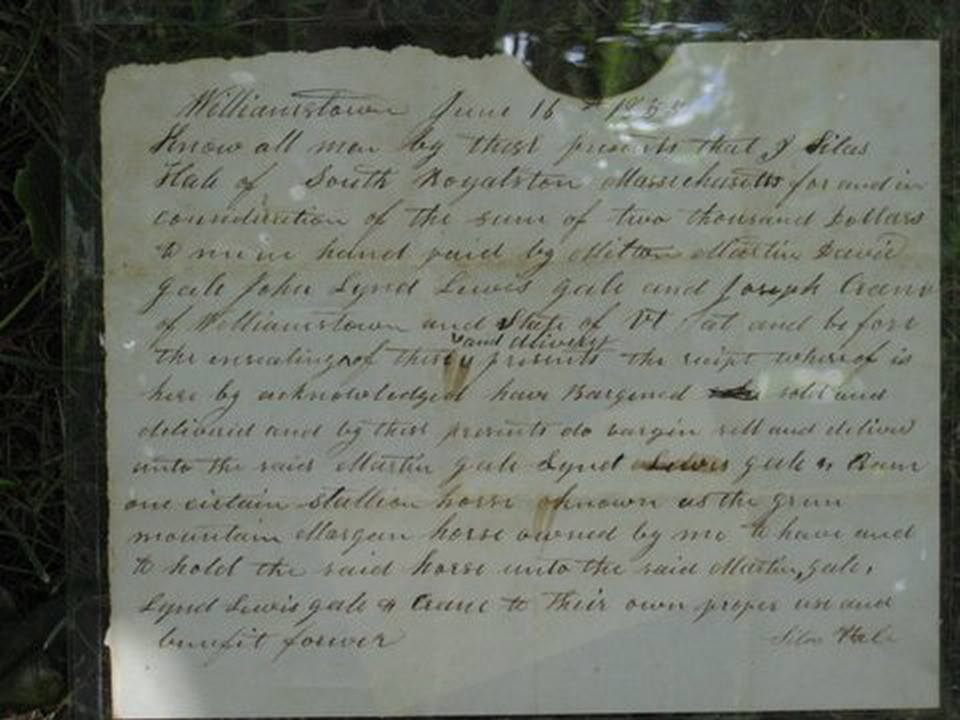 Williamstown June 16
Know all men by these presents that I Silas
Hale of South Royalston Massichusetts for and in
consideration of the sum of two thousand Dollars
to me in hand paid by Milton Martin David
gale John Lynd Lewis gale and Joseph Crane
of Williamstown and State of Vt at and before
and delivery
the ensealing of these presents the reciept whereof is
here by acknowledged have Bargened sold and
deliverid and by these presents do bargin sell and deliver
unto the said Martin gale Lynd Lewis gale &
one certain stallion horse known as the green
mountain Morgan horse owned by me to have and
to hold the said horse unto the said Martin, gale,
Lynd Lewis gale & Crane to their own proper use and
benefit forever Silas Hale